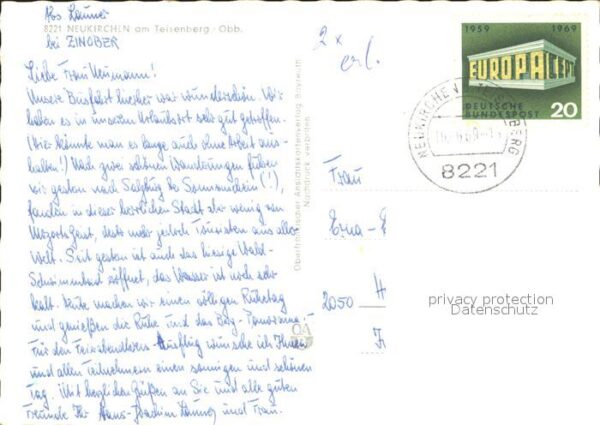 Abs. Launer
8221 NEUKIRCHEN am Teisenberg, Obb.
bei ZINOBER
2x
erl.
Liebe Frau Neumann!
Unsere Busfahrt hierher war wunderschön. Wir
haben es in unserem Urlaubsort sehr gut getroffen.
(Hier könnte man es lange auch ohne Arbeit aus-
halten!) Nach zwei schönen Wanderungen fuhren
wir gestern nach Salzburg bei Sonnenschein (!),
fanden in dieser herrlichen Stadt aber wenig von
Mozarts Geist, desto mehr jedoch Touristen aus aller
Welt. Seit gestern ist auch das hiesige Wald-
Schwimmbad eröffnet, das Wasser ist noch sehr
kalt. Heute machen wir einen völligen Ruhetag
und genießen die Ruhe und das Berg-Panorama!
Für den Ausflug wünsche ich Ihnen
und allen Teilnehmern einen sonnigen und schönen
Tag. Mit herzlichen Grüßen an Sie und alle guten
Freunde Ihr Hans-Joachim Launer und Frau.
Oberfränkischer Ansichtskartenverlag Bayreuth
Nachdruck verboten
OA
1959 1969
EUROPA CEPT
DEUTSCHE
BUNDESPOST 20
NEUKIRCHEN
8221
Frau
Erna
2050 H
privacy protection
Datenschutz